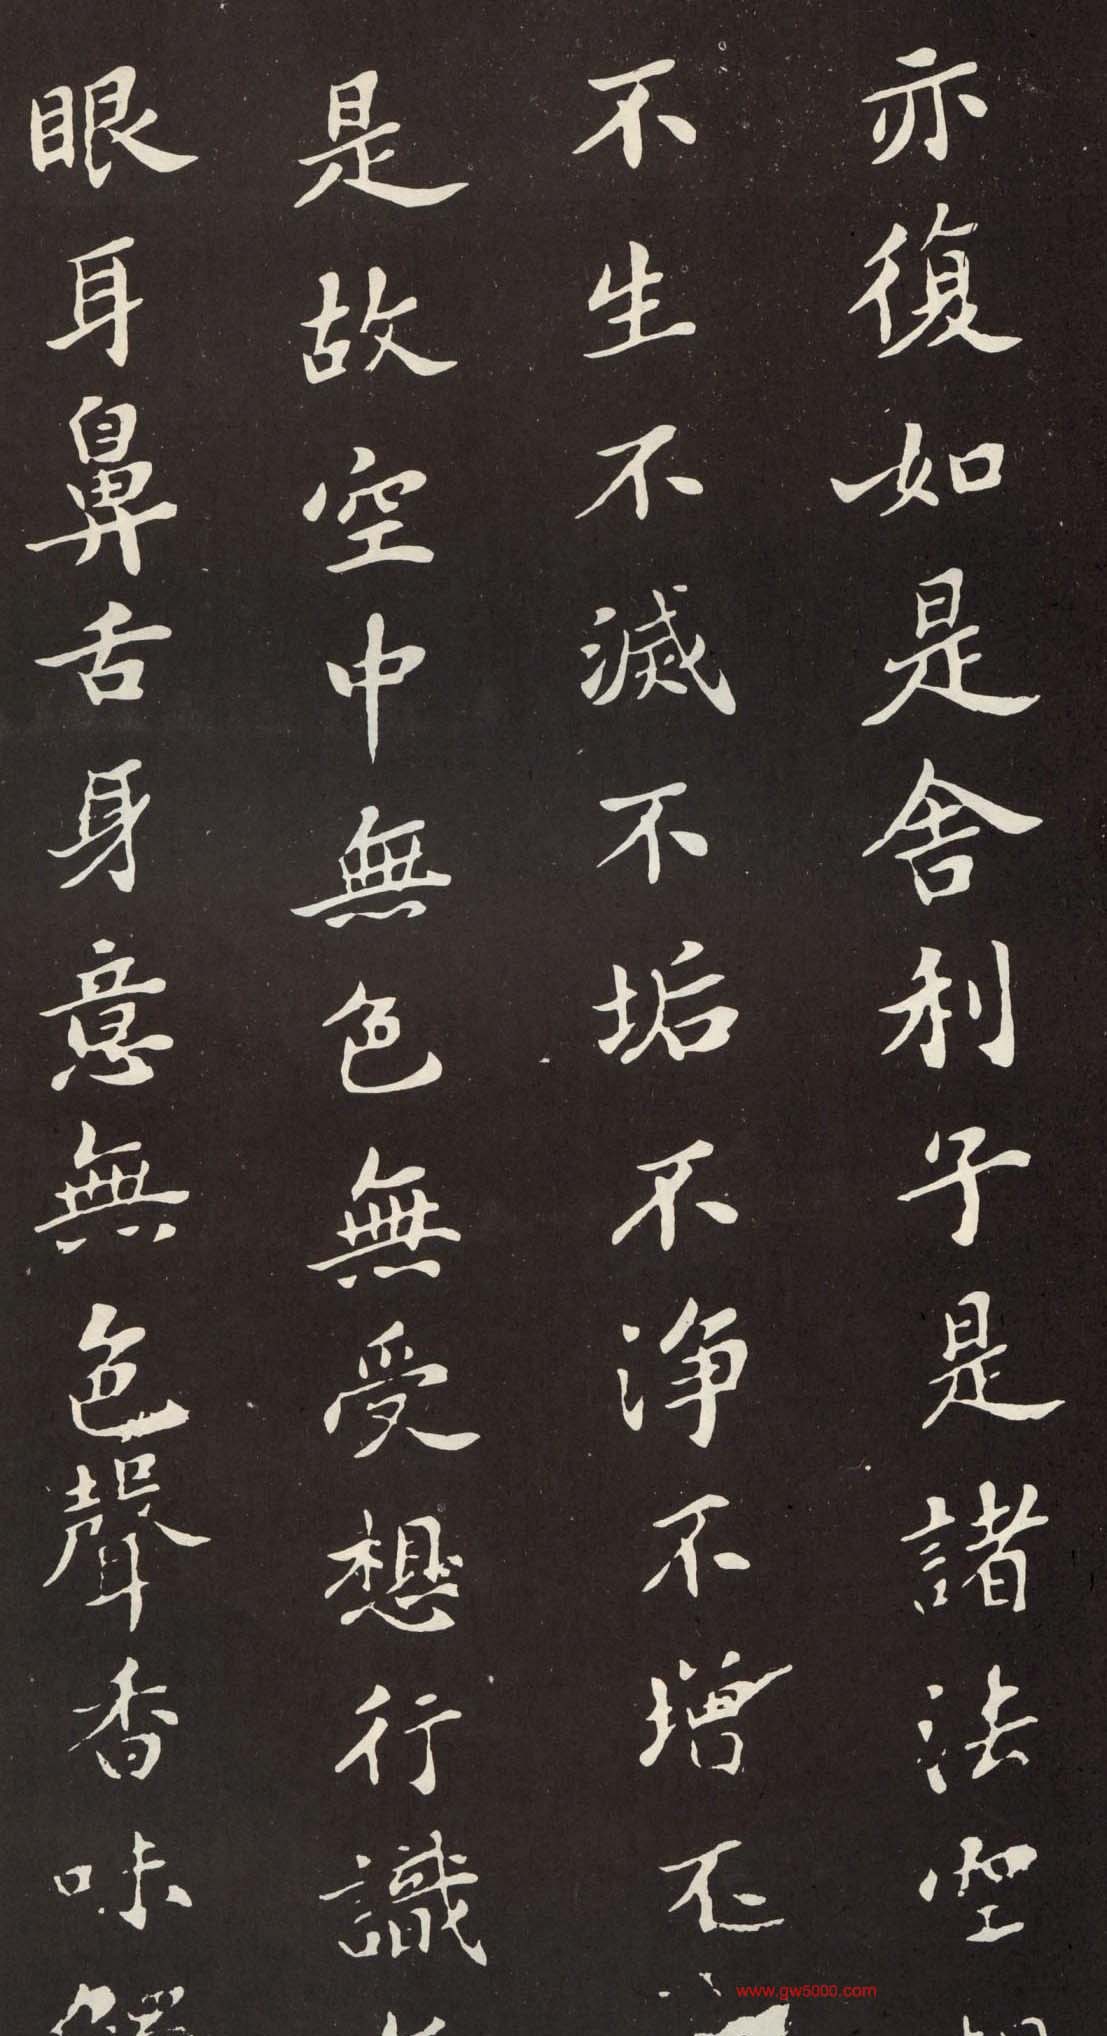 亦復如是舍利子是諸法空
不生不滅不垢不淨不增不
是故空中無色無受想行識
眼耳鼻舌身意無色聲香味
www.gw5000.com